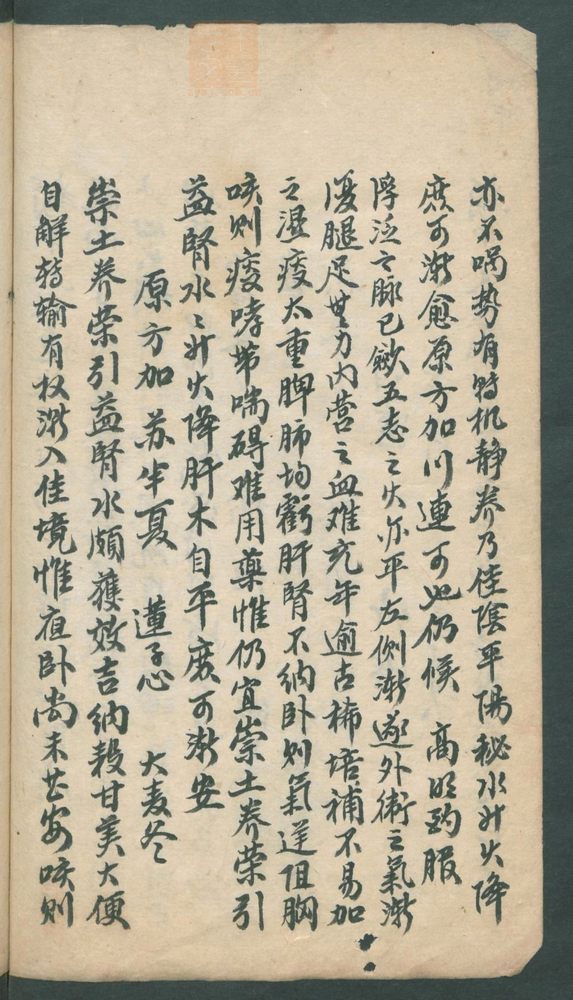 亦不喎势有转机静养乃佳陰平陽秘水升火降
庶可渐愈原方加川連可也仍候　高明酌服
浮泛之脉已歛五志之火亦平左侧渐遂外衛之氣渐
復腿足無力内营之血难充年逾古稀培補不易加
之湿痰太重脾肺均虧肝腎不納卧则氣逆阻胸
咳则痰哮带喘碍难用藥惟仍宜崇土养荣引
益腎水水升火降肝木自平庶可渐安
原方加　苏半夏　蓮子心　大麦冬
崇土养荣引益腎水頗獲效吉纳穀甘美大便
自解转输有权渐入佳境惟夜卧尚未甚安咳则